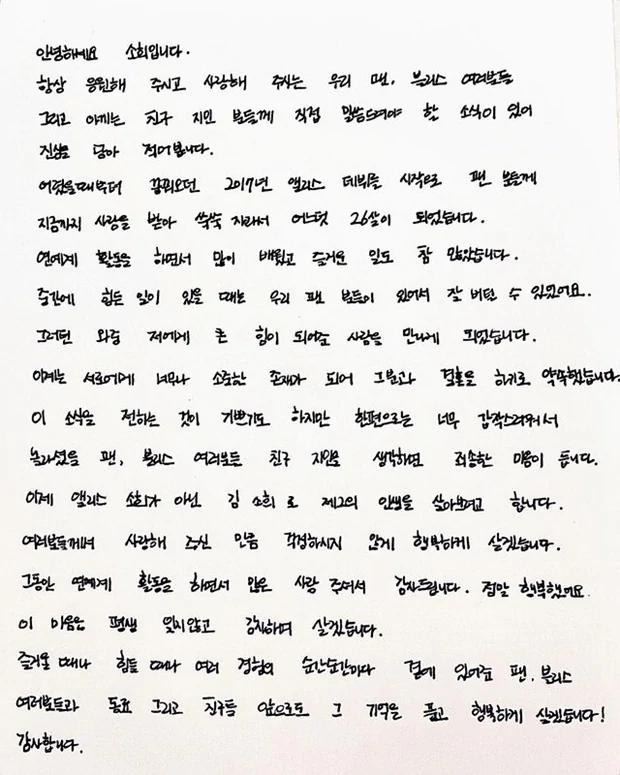 안녕하세요 소희입니다.
항상 응원해 주시고 사랑해 주시는 우리 팬, 블리스 여러분들
그리고 아끼는 친구 지인 분들께 직접 말씀드려야 할 소식이 있어
진심을 담아 적어봅니다.
어렸을때부터 꿈꿔오던 2017년 앨리스 데뷔를 시작으로 팬 분들께
지금까지 사랑을 받아 쑥쑥 자라서 어느덧 26살이 되었습니다.
연예계 활동을 하면서 많이 배웠고 즐거운 일도 참 많았습니다.
중간에 힘든 일이 있을 때는 우리 팬 분들이 있어서 잘 버틸 수 있었어요.
그러던 와중 저에게 큰 힘이 되어준 사람을 만나게 되었습니다.
이제는 서로에게 너무나 소중한 존재가 되어 그분과 결혼을 하기로 약속했습니다.
이 소식을 전하는 것이 기쁘기도 하지만 한편으로는 너무 갑작스러워서
놀라셨을 팬, 블리스 여러분들 친구 지인을 생각하면 죄송한 마음이 듭니다.
이제 앨리스 소희가 아닌 김 소희 로 제2의 인생을 살아보려고 합니다.
여러분들께서 사랑해 주신 만큼 걱정하시지 않게 행복하게 살겠습니다.
그동안 연예계 활동을 하면서 많은 사랑 주셔서 감사드립니다. 정말 행복했어요.
이 마음은 평생 잊지않고 감사하며 살겠습니다.
즐거울 때나 힘들 때나 여러 경험의 순간순간마다 곁에 있어준 팬, 블리스
여러분들과 동료 그리고 친구들 앞으로도 그 기억을 품고 행복하게 살겠습니다!
감사합니다.